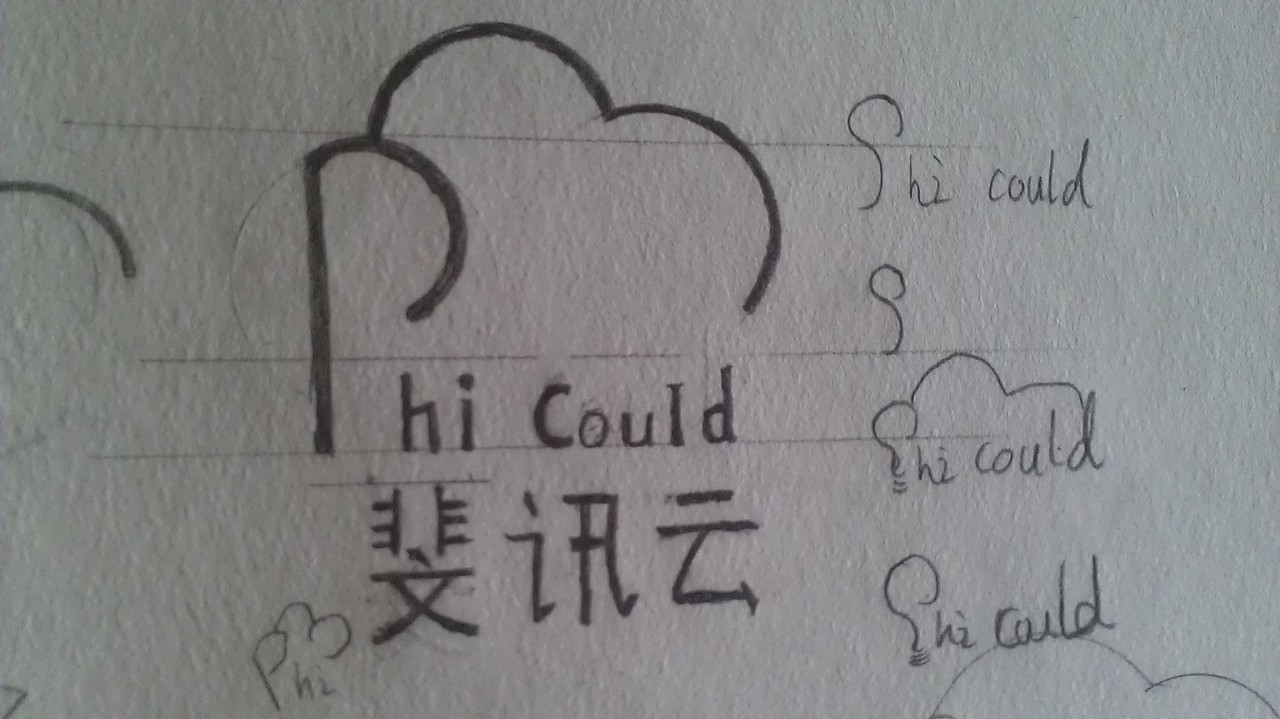 Phi Could
斐讯云
Phi
hi could
hi could
hi could